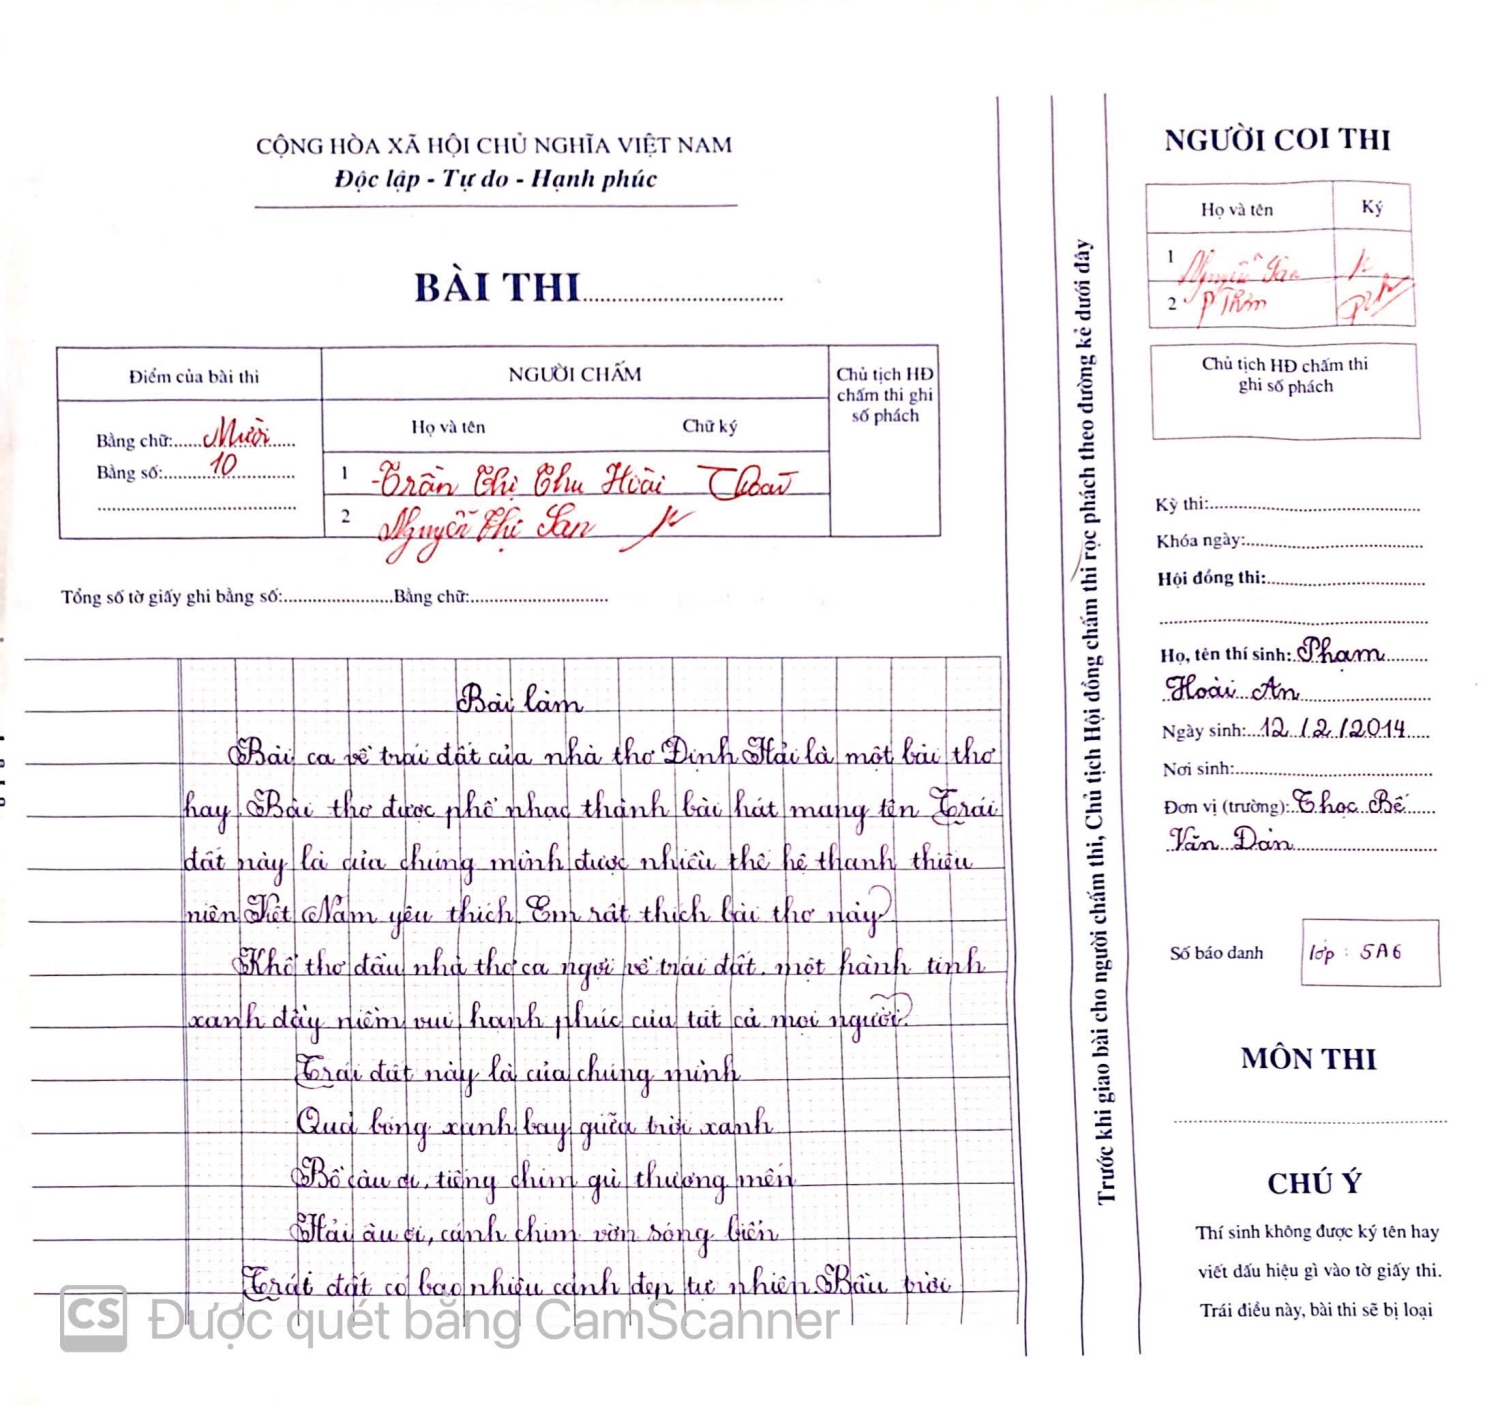 CỘNG HÒA XÃ HỘI CHỦ NGHĨA VIỆT NAM
Độc lập - Tự do - Hạnh phúc
BÀI THI
Điểm của bài thi
NGƯỜI CHẤM
Chủ tịch HĐ
chấm thi ghi
số phách
Bằng chữ: Mười
Bằng số: 10
Họ và tên
Chữ ký
1 Trần Thị Thu Hoài
2 Nguyễn Thị San
Tổng số tờ giấy ghi bằng số: Bằng chữ:
Bài làm
Bài ca về trái đất của nhà thơ Định Hải là một bài thơ
hay. Bài thơ được phổ nhạc thành bài hát mang tên Trái
đất này là của chúng mình được nhiều thế hệ thanh thiếu
niên Việt Nam yêu thích. Em rất thích bài thơ này
Khổ thơ đầu nhà thơ ca ngợi về trái đất. một hành tinh
xanh đầy niềm vui, hạnh phúc của tất cả mọi người.
Trái đất này là của chúng mình
Quả bóng xanh bay giữa trời xanh
Bồ câu ơi, tiếng chim gù thương mến
Hải âu ơi, cánh chim vờn sóng biển
Trái đất có bao nhiêu cảnh đẹp tự nhiên. Bầu trời
CS Được quét bằng CamScanner
Trước khi giao bài cho người chấm thi, Chủ tịch Hội đồng chấm thi rọc phách theo đường kẻ dưới đây
NGƯỜI COI THI
Họ và tên
Ký
1 Nguyễn San
2 P Thơm
Chủ tịch HĐ chấm thi
ghi số phách
Kỳ thi:
Khóa ngày:
Hội đồng thi:
Họ, tên thí sinh: Phạm
Hoài An
Ngày sinh: 12/2/2014
Nơi sinh:
Đơn vị (trường): T học Bế
Văn Đàn
Số báo danh
lớp: 5A6
MÔN THI
CHÚ Ý
Thí sinh không được ký tên hay
viết dấu hiệu gì vào tờ giấy thi.
Trái điều này, bài thi sẽ bị loại